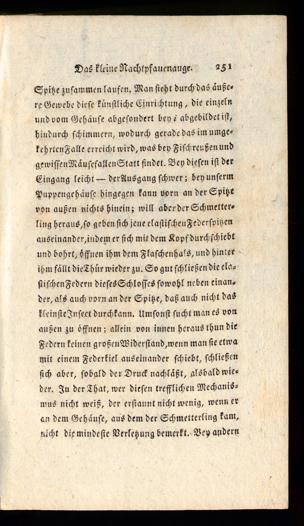 Das kleine Nachtpfauenauge. 251
Spitze zusammen laufen. Man sieht durch das äuße-
re Gewebe diese künstliche Einrichtung, die einzeln
und vom Gehäuse abgesondert bey i abgebildet ist,
hindurch schimmern, wodurch gerade das im umge-
kehrten Falle erreicht wird, was bey Fischreußen und
gewissen Mäusefallen Statt findet. Bey diesen ist der
Eingang leicht — der Ausgang schwer; bey unserm
Puppengehäuse hingegen kann vorn an der Spitze
von außen nichts hinein; will aber der Schmetter-
ling heraus, so geben sich jene elastischen Federspitzen
auseinander, indem er sich mit dem Kopf durchschiebt
und bohrt, öffnen ihm dem Flaschenhals, und hinter
ihm fällt die Thür wieder zu. So gut schließen die ela-
stischen Federn dieses Schlosses sowohl neben einan-
der, als auch vorn an der Spitze, daß auch nicht das
kleinste Insect durchkann. Umsonst sucht man es von
außen zu öffnen; allein von innen heraus thun die
Federn keinen großen Widerstand, wenn man sie etwa
mit einem Federkiel auseinander schiebt, schließen
sich aber, sobald der Druck nachläßt, alsbald wie-
der. In der That, wer diesen trefflichen Mechanis-
mus nicht weiß, der erstaunt nicht wenig, wenn er
an dem Gehäuse, aus dem der Schmetterling kam,
nicht die mindeste Verletzung bemerkt. Bey andern